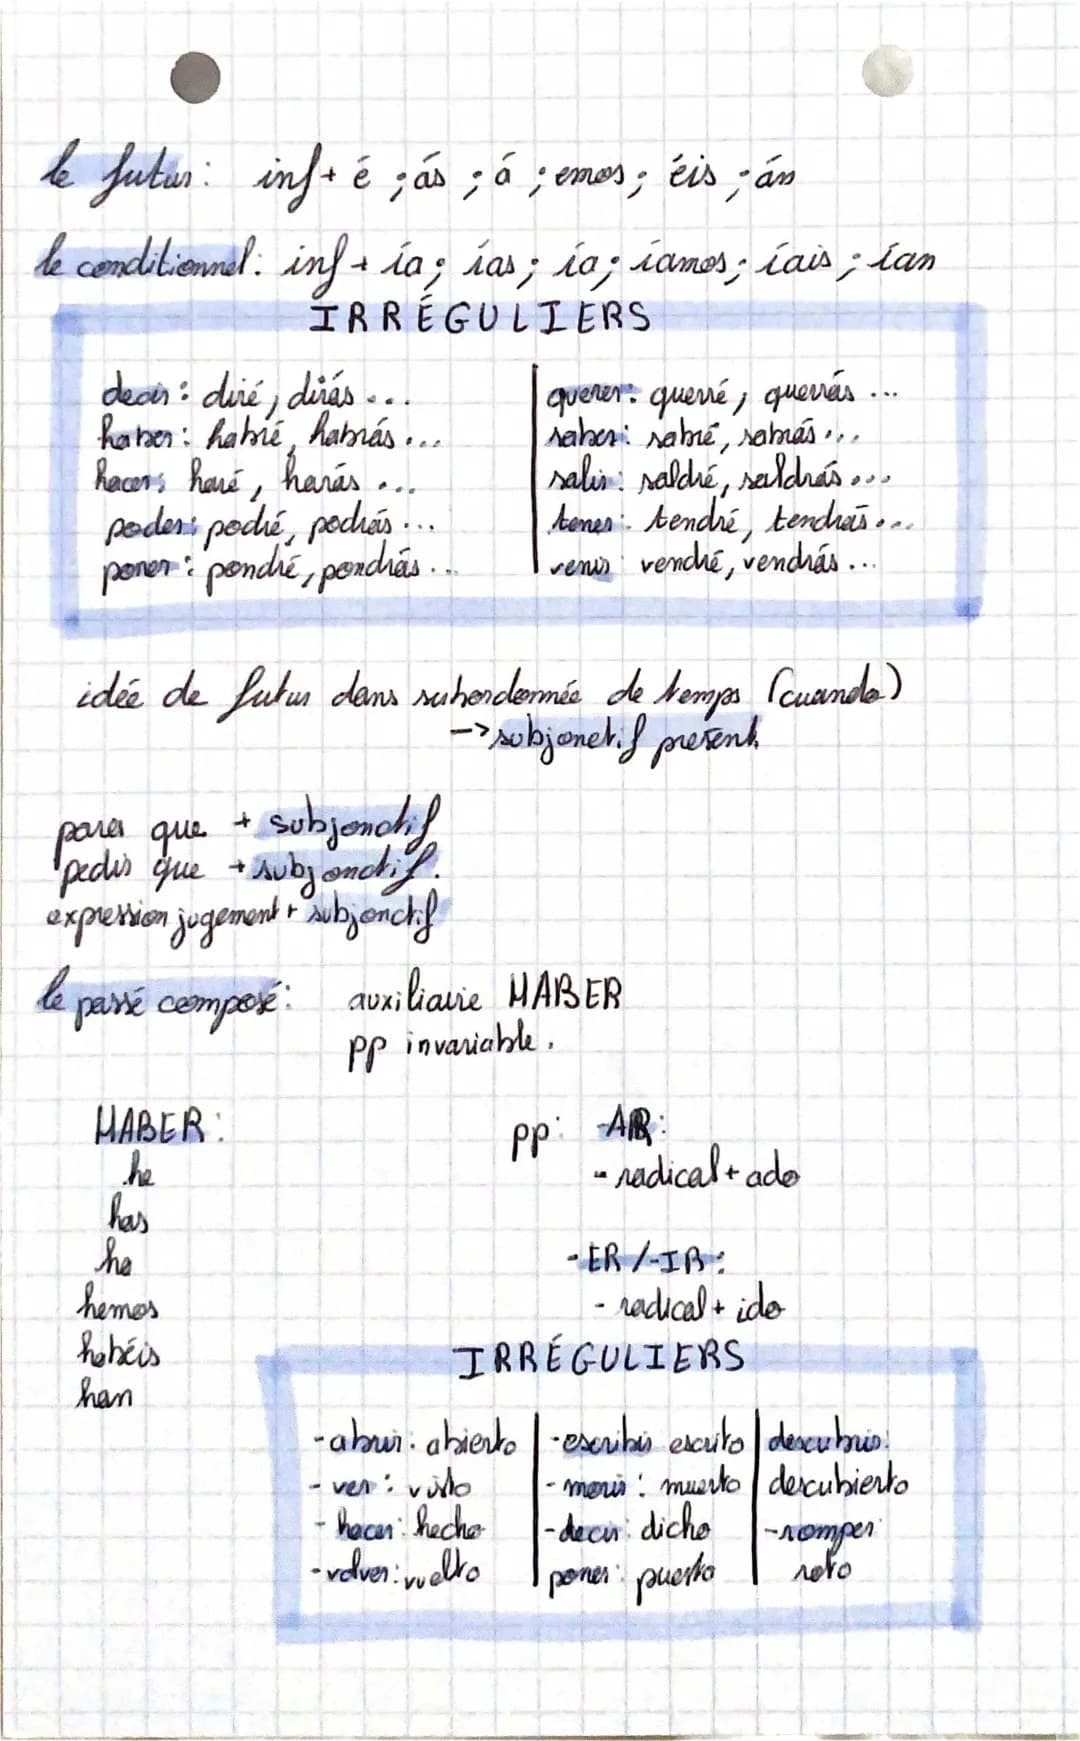 le futur: inf + é ; ás ; á ; emos ; éis ; án
le conditionnel: inf + ía ; ías ; ía ; íamos ; íais ; ían
IRRÉGULIERS
decir : diré, dirás ...
haber : habré, habrás ...
hacer : haré, harás ...
poder : podré, podrás ...
poner : pondré, pondrás ...
querer : querré, querrás ...
saber : sabré, sabrás ...
salir : saldré, saldrás ...
tener : tendré, tendrás ...
venir : vendré, vendrás ...
idée de futur dans subordonnée de temps (cuando)
-> subjonctif présent
para que + subjonctif
pedir que + subjonctif.
expression jugement + subjonctif
le passé composé : auxiliaire HABER
pp invariable.
HABER :
he
has
ha
hemos
habéis
han
pp : -AR :
- radical + ado
-ER /-IR :
- radical + ido
IRRÉGULIERS
- abrir : abierto
- ver : visto
- hacer : hecho
- volver : vuelto
- escribir escrito
- morir : muerto
- decir : dicho
poner : puesto
descubrir :
descubierto
- romper
roto